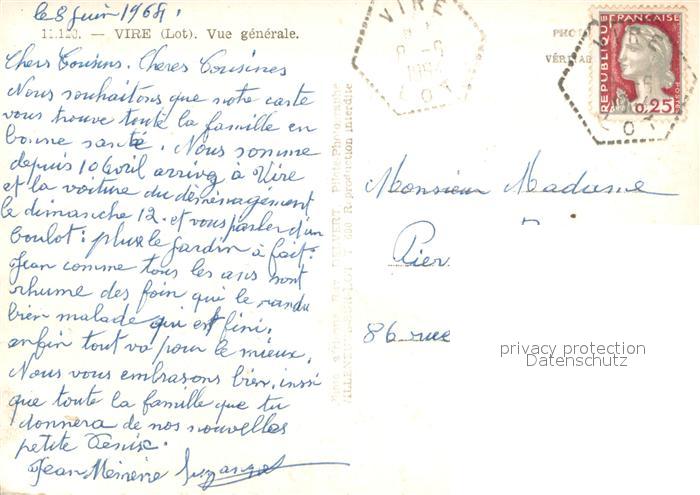 le 8 juin 1964.
11.120. — VIRE (Lot). Vue générale.
Chers Cousins. Cheres Cousines
Nous souhaitons que notre carte
vous trouve toute la famille en
bonne santé. Nous somme
depuis 10 Avril arrivez à Vire
et la voiture du déménagement
le dimanche 12. et vous parler d'un
boulot: plus le jardin à fait.
Jean comme tous les ans sont
rhume des foin qui le rendu
bien malade qui est fini.
enfin tout va pour le mieux.
Nous vous embrasons bien, inssi
que toute la famille que tu
donnera de nos nouvelles
petite Denise.
Jean Suzanne
Reproduction interdite
VIRE
LOT
RÉPUBLIQUE FRANÇAISE
POSTES
0,25
VIRE
LOT
Monsieur Madame
Pier
86 rue
privacy protection
Datenschutz